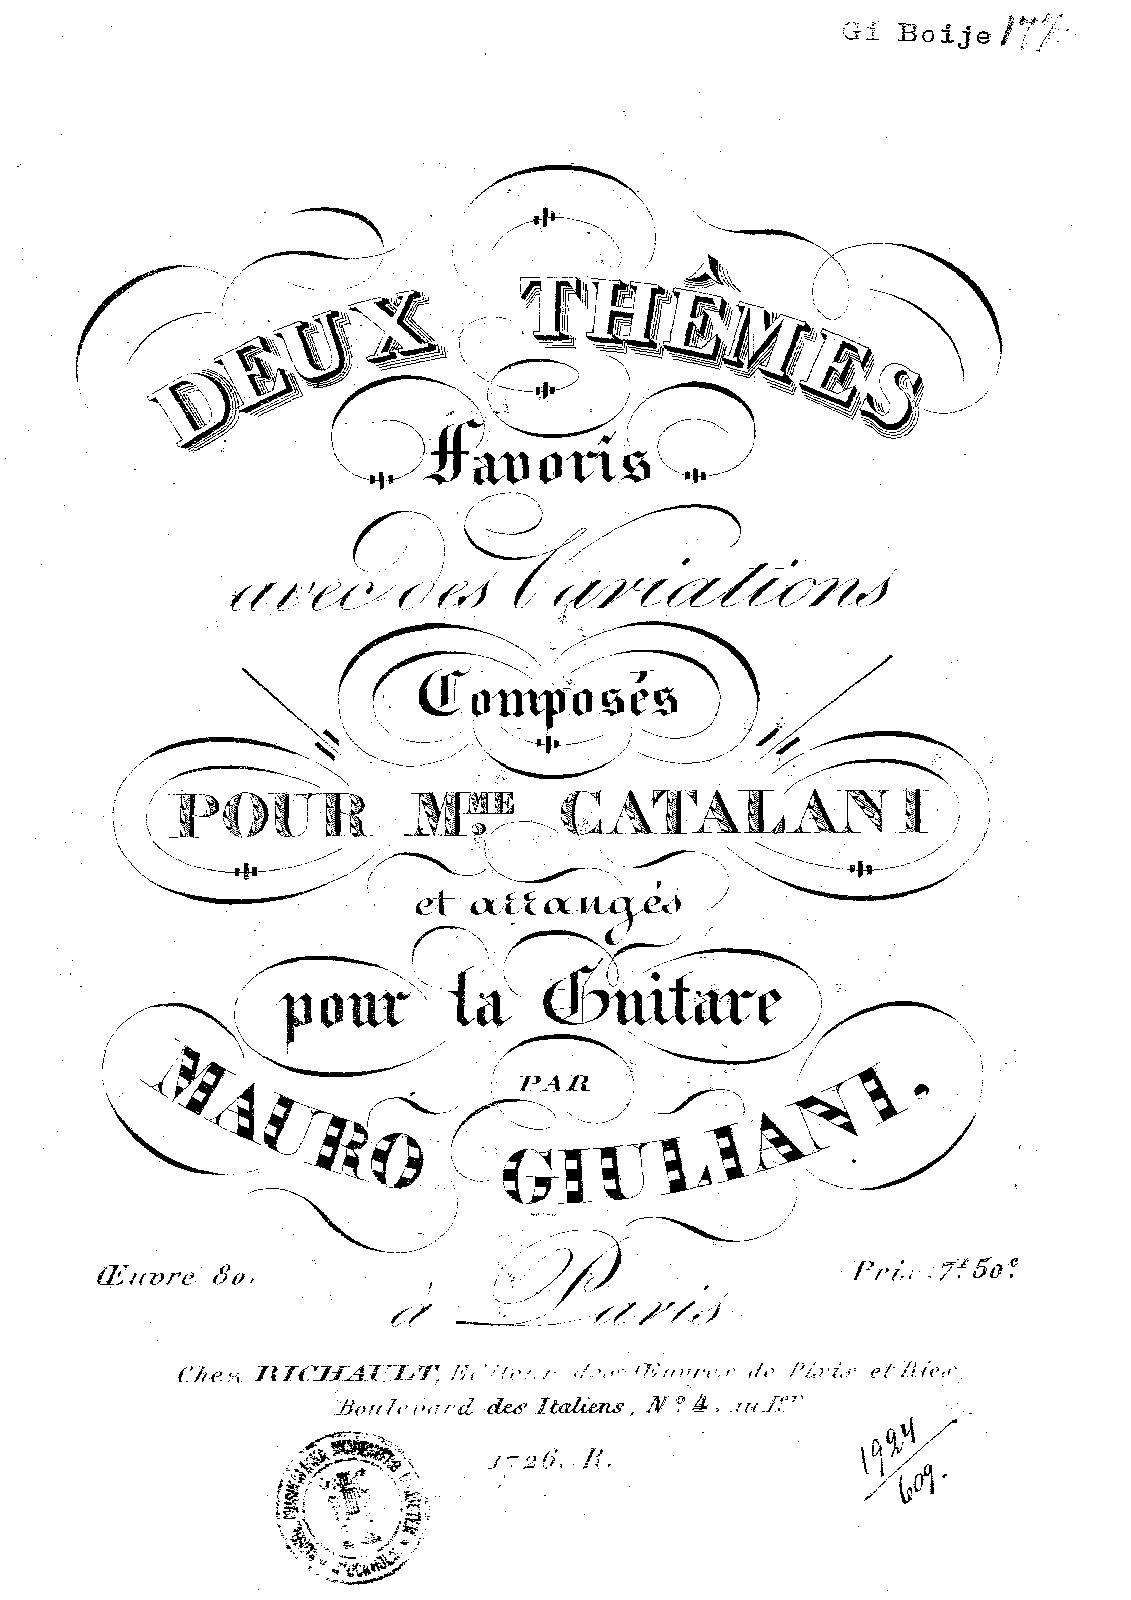 Gi Boije 177
DEUX THÊMES
Favoris
avec des Variations
Composés
POUR M.ME CATALANI
et arrangés
pour la Guitare
PAR
MAURO GIULIANI.
Œuvre 80.
Prix 7f 50c
à Paris
Chez RICHAULT, Editeur des Œuvres de Pixis et Ries,
Boulevard des Italiens, N.o 4. au 1.er
1726. R.
1924
609.